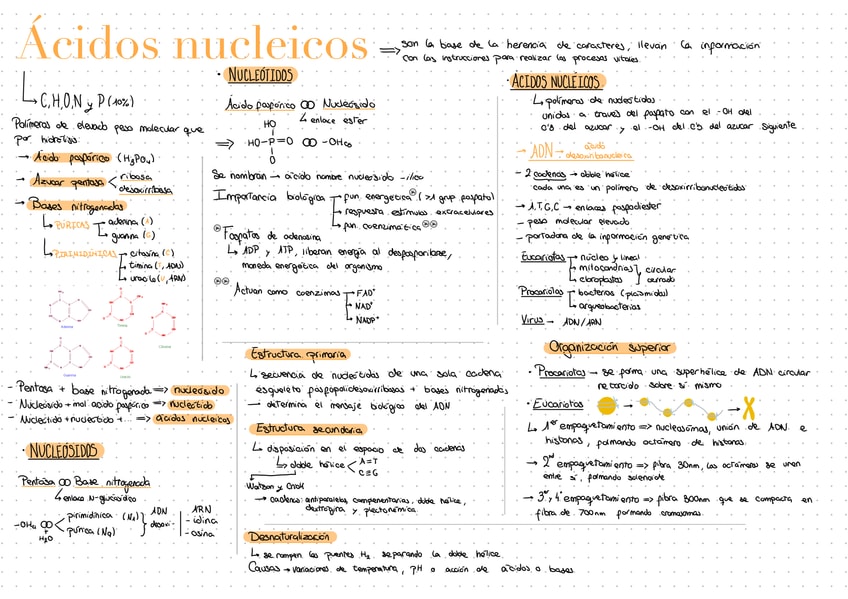 Ácidos nucleicos
⇒ son la base de la herencia de caracteres, llevan la información
con las instrucciones para realizar los procesos vitales.
C,H,O,N y P (10%)
Polímeros de elevado peso molecular que
por hidrólisis:
→ Ácido fosfórico (H₃PO₄)
→ Azúcar pentosa < ribosa
desoxirribosa
→ Bases nitrogenadas
PÚRICAS → adenina (A)
guanina (G)
PIRIMIDÍNICAS → citosina (C)
timina (T, ADN)
uracilo (U, ARN)
Adenina
Timina
Citosina
Guanina
Uracilo
- Pentosa + base nitrogenada ⇒ nucleósido
- Nucleósido + mol ácido fosfórico ⇒ nucleótido
- Nucleótido + nucleótido + ... ⇒ ácidos nucleicos
· NUCLEÓSIDOS
Pentosa ∞ Base nitrogenada
↳ enlace N-glucosídico
pirimidínica (N₁)
púrica (N₉)
H₂O
ADN
desoxi-
ARN
- idina
- osina
· NUCLEÓTIDOS
Ácido fosfórico ∞ Nucleósido
↳ enlace éster
HO
⇒ HO-P=O ∞ -OH
O
Se nombran → ácido nombre nucleósido -ílico
Importancia biológica → fun. energética (>1 grup fosfato)
→ respuesta estímulos extracelulares
→ fun. coenzimática
Fosfatos de adenosina
↳ ADP y ATP, liberan energía al desfosforilarse,
moneda energética del organismo
Actúan como coenzimas → FAD⁺
→ NAD⁺
→ NADP⁺
Estructura primaria
↳ secuencia de nucleótidos de una sola cadena
esqueleto fosfopolidesoxirribosas + bases nitrogenadas
→ determina el mensaje biológico del ADN
Estructura secundaria
↳ disposición en el espacio de dos cadenas
↳ doble hélice < A=T
C≡G
Watson y Crick
→ cadenas: antiparalelas, complementarias, doble hélice,
dextrógira y plectonémica.
Desnaturalización
↳ se rompen los puentes H₂ separando la doble hélice
Causas → variaciones de temperatura, pH o acción de ácidos o bases
· ÁCIDOS NUCLEICOS
↳ polímeros de nucleótidos
unidos a través del fosfato con el -OH del
C'5 del azúcar y el -OH del C'3 del azúcar siguiente
→ ADN → ácido
desoxirribonucleico
- 2 cadenas → doble hélice
cada una es un polímero de desoxirribonucleótidos
→ A,T,G,C → enlaces fosfodiéster
- peso molecular elevado
- portadora de la información genética
Eucariotas → núcleo y lineal
→ mitocondrias } circular
→ cloroplastos } cerrado
Procariotas → bacterias (plásmidos)
→ arqueobacterias
Virus → ADN/ARN
Organización superior
· Procariotas → se forma una superhélice de ADN circular
retorcido sobre sí mismo
· Eucariotas
↳ 1er empaquetamiento ⇒ nucleosomas, unión de ADN e
histonas, formando octámero de histonas.
→ 2nd empaquetamiento ⇒ fibra 30nm, los octámeros se unen
entre sí, formando solenoide
→ 3er, 4º empaquetamiento ⇒ fibra 300nm que se compacta en
fibra de 700nm formando cromosomas.